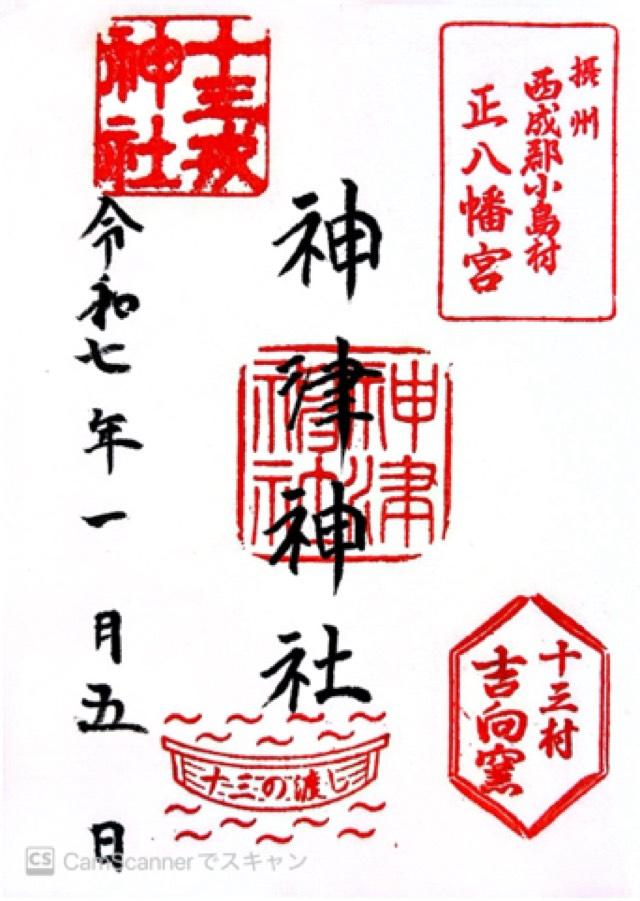 摂州
西成郡小島村
正八幡宮
十三村
吉向窯
神津神社
神津
神社
十三の渡し
十三戎
神社
令和七年一月五日
CS CamScannerでスキャン